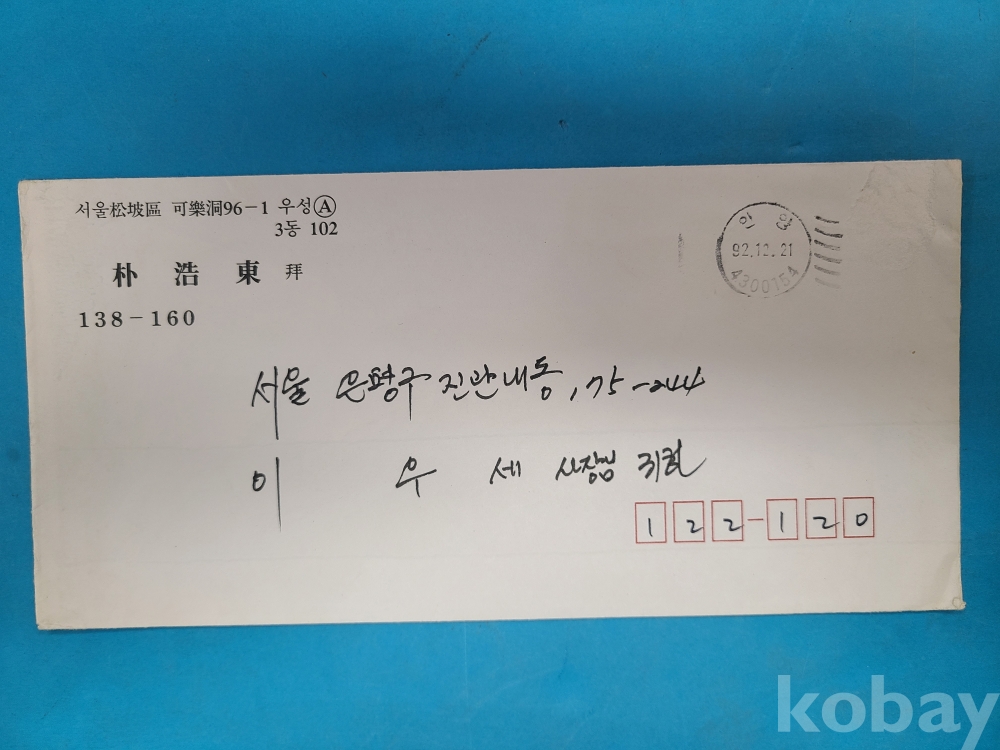 서울松坡區 可樂洞96-1 우성Ⓐ
3동 102
朴浩東 拜
138-160
안양
92.12.21
4300154
서울 은평구 진관내동, 75-244
이 우 세 사장님 귀하
122-120
kobay